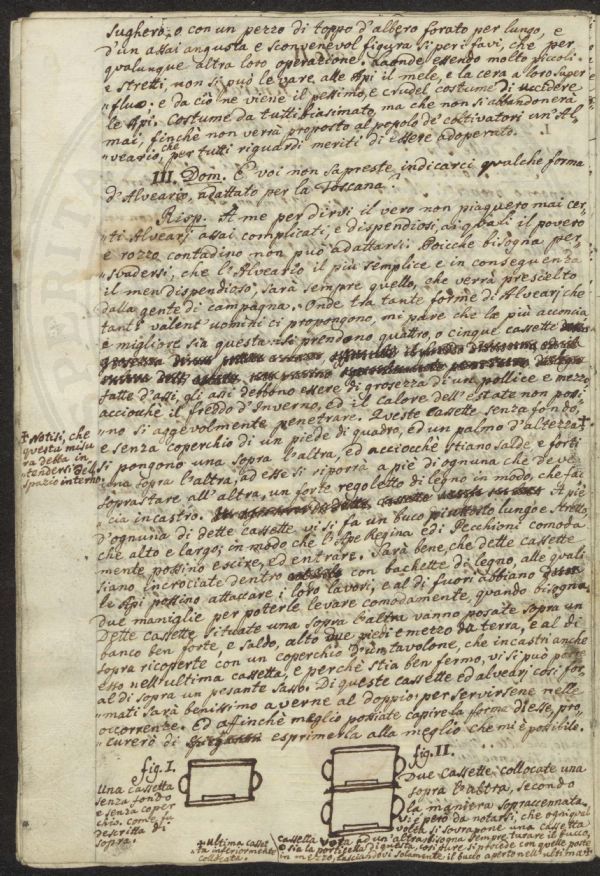 sughero, o con un pezzo di toppo d'albero forato per lungo, e
d'un assai angusta e sconvenevol figura si per i favi, che per
qualunque altra loro operazione. Laonde essendo molto piccoli
e stretti, non si può levare alle Api il mele, e la cera a loro super
flua; e da ciò ne viene il pessimo, e crudel costume di uccidere
le Api. Costume da tutti biasimato, ma che non si abbandonerà
mai, finchè non verrà proposto al popolo de' coltivatori un Al-
veario, che per tutti riguardi meriti di essere adoperato.
III. Dom. E voi non sapreste indicarci qualche forma
d'Alveario, adattato per la Toscana?
Risp. A me per dirvi il vero non piaquero mai cer-
ti Alvearj assai complicati, e dispendiosi, ai quali il povero
e rozzo contadino non può adattarsi. Poicche bisogna per
suadersi, che l'Alveario il più semplice e in conseguenza
il men dispendioso, sarà sempre quello, che verrà prescielto
dalla gente di campagna. Onde tra tante forme di Alvearj che
tanti valent' uomini ci propongono, mi pare che la più acconcia,
e migliore sia questa. Si prendano quattro, o cinque cassette
fatte d'assi, gli assi debbono essere di grossezza di un pollice e mezzo
acciocchè il freddo d'Inverno, ed il calore dell'estate non possi
no si aggevolmente penetrare. Queste cassette senza fondo,
e senza coperchio di un piede di quadro, ed un palmo d'altezza +
si pongono una sopra l'altra, ed acciocchè stiano salde e forti
una sopra l'altra, ad esse si si porrà a piè di ognuna che deve
soprastare all'altra, un forte regoletto di legno in modo, che fac-
cia incastro. A piè
d'ognuna di dette cassette vi si fa un buco piuttosto lungo e stretto,
che alto e largo, in modo che l'Ape Regina ed i Pecchioni comoda
mente possino escire, ed entrare. Sarà bene, che dette cassette
siano incrociate dentro con bachette di legno, alle quali
le Api possino attaccare i loro lavori, e al di fuori abbiano
due maniglie per poterle levare comodamente, quando bisogna.
Dette cassette situate una sopra l'altra vanno posate sopra un
banco ben forte, e saldo, alto due piedi e mezzo da terra, e al di
sopra ricoperte con un coperchio d'un tavolone, che incastri anche
esso nell'ultima cassetta, e perchè stia ben fermo, vi si può porre
al di sopra un pesante sasso. Di queste cassette ed alvearj così for-
mati sarà benissimo averne al doppio, per servirsene nelle
occorrenze. Ed affinchè meglio possiate capire la forma di esse, pro-
curerò di esprimerla alla meglio che mi è possibile.
+ Notisi, che
questa misu
ra detta in
tendersi del
spazio interno
fig. I.
Una cassetta
senza fondo
e senza coper
chio, come fu
descritta di
sopra.
fig. II.
Due cassette collocate una
sopra l'altra, secondo
la maniera sopraccennata
vi è però da notarsi, che ogni qual
volta si sovrapone una cassetta
ad un'altra bisogna sempre turare il buco,
+ ultima casset
ta inferiormente
collocata.
cassetta vota
o sia la porticella di questa, e così pure si procede con quelle poste
in mezzo, lasciandovi solamente il buco aperto nell'ultima +